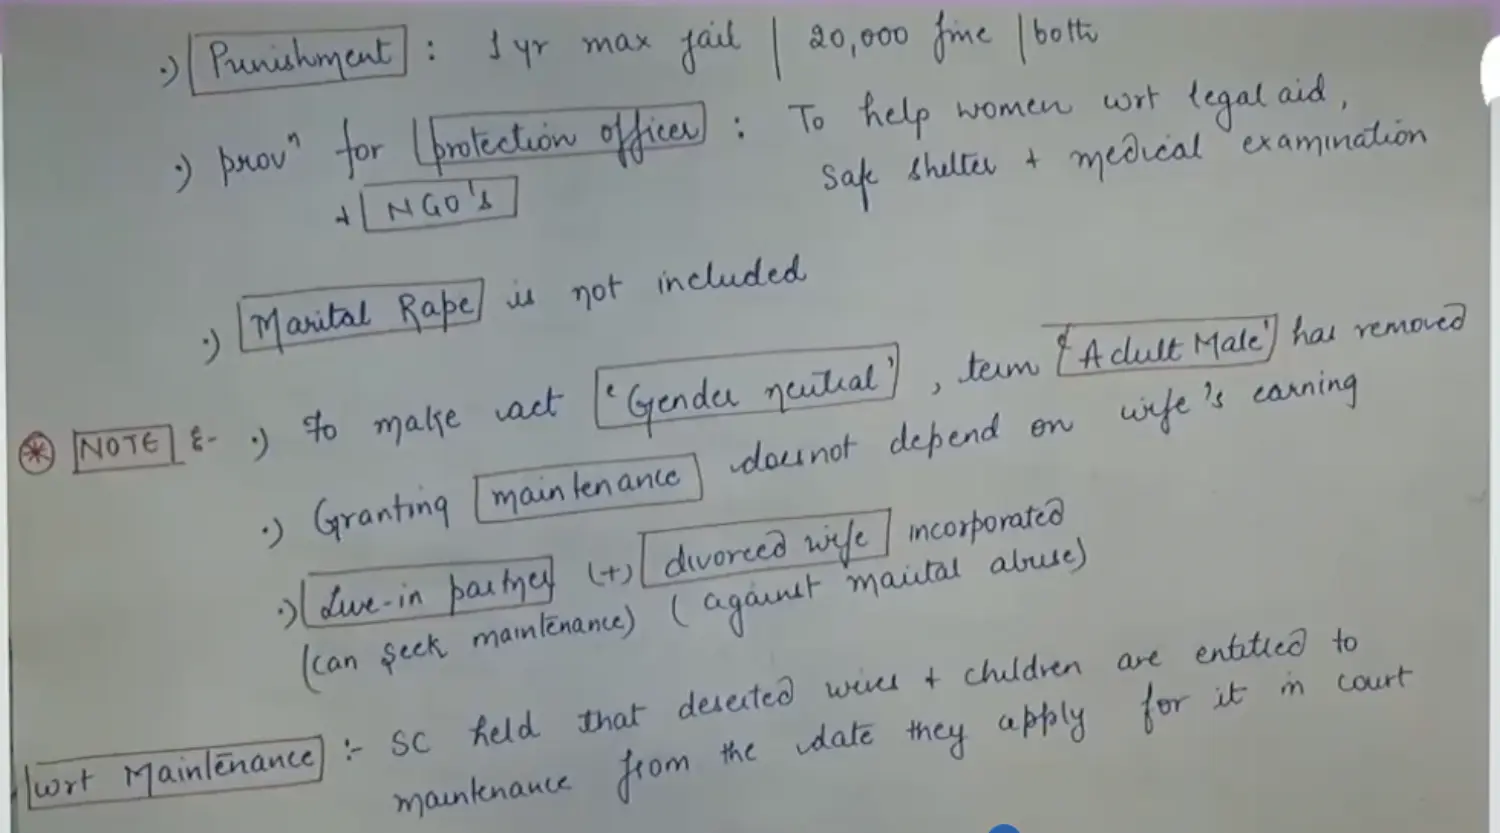 ·) Punishment : 1 yr max jail | 20,000 fine | both
·) provⁿ for protection officer : To help women wrt legal aid,
+ NGO's safe shelter + medical examination
·) Marital Rape is not included
* NOTE :- ·) To make act 'Gender neutral', term 'Adult Male' has removed
·) Granting maintenance doesnot depend on wife's earning
·) Live-in partner (+) divorced wife incorporated
(can seek maintenance) (against marital abuse)
wrt Maintenance :- SC held that deserted wives + children are entitled to
maintenance from the date they apply for it in court